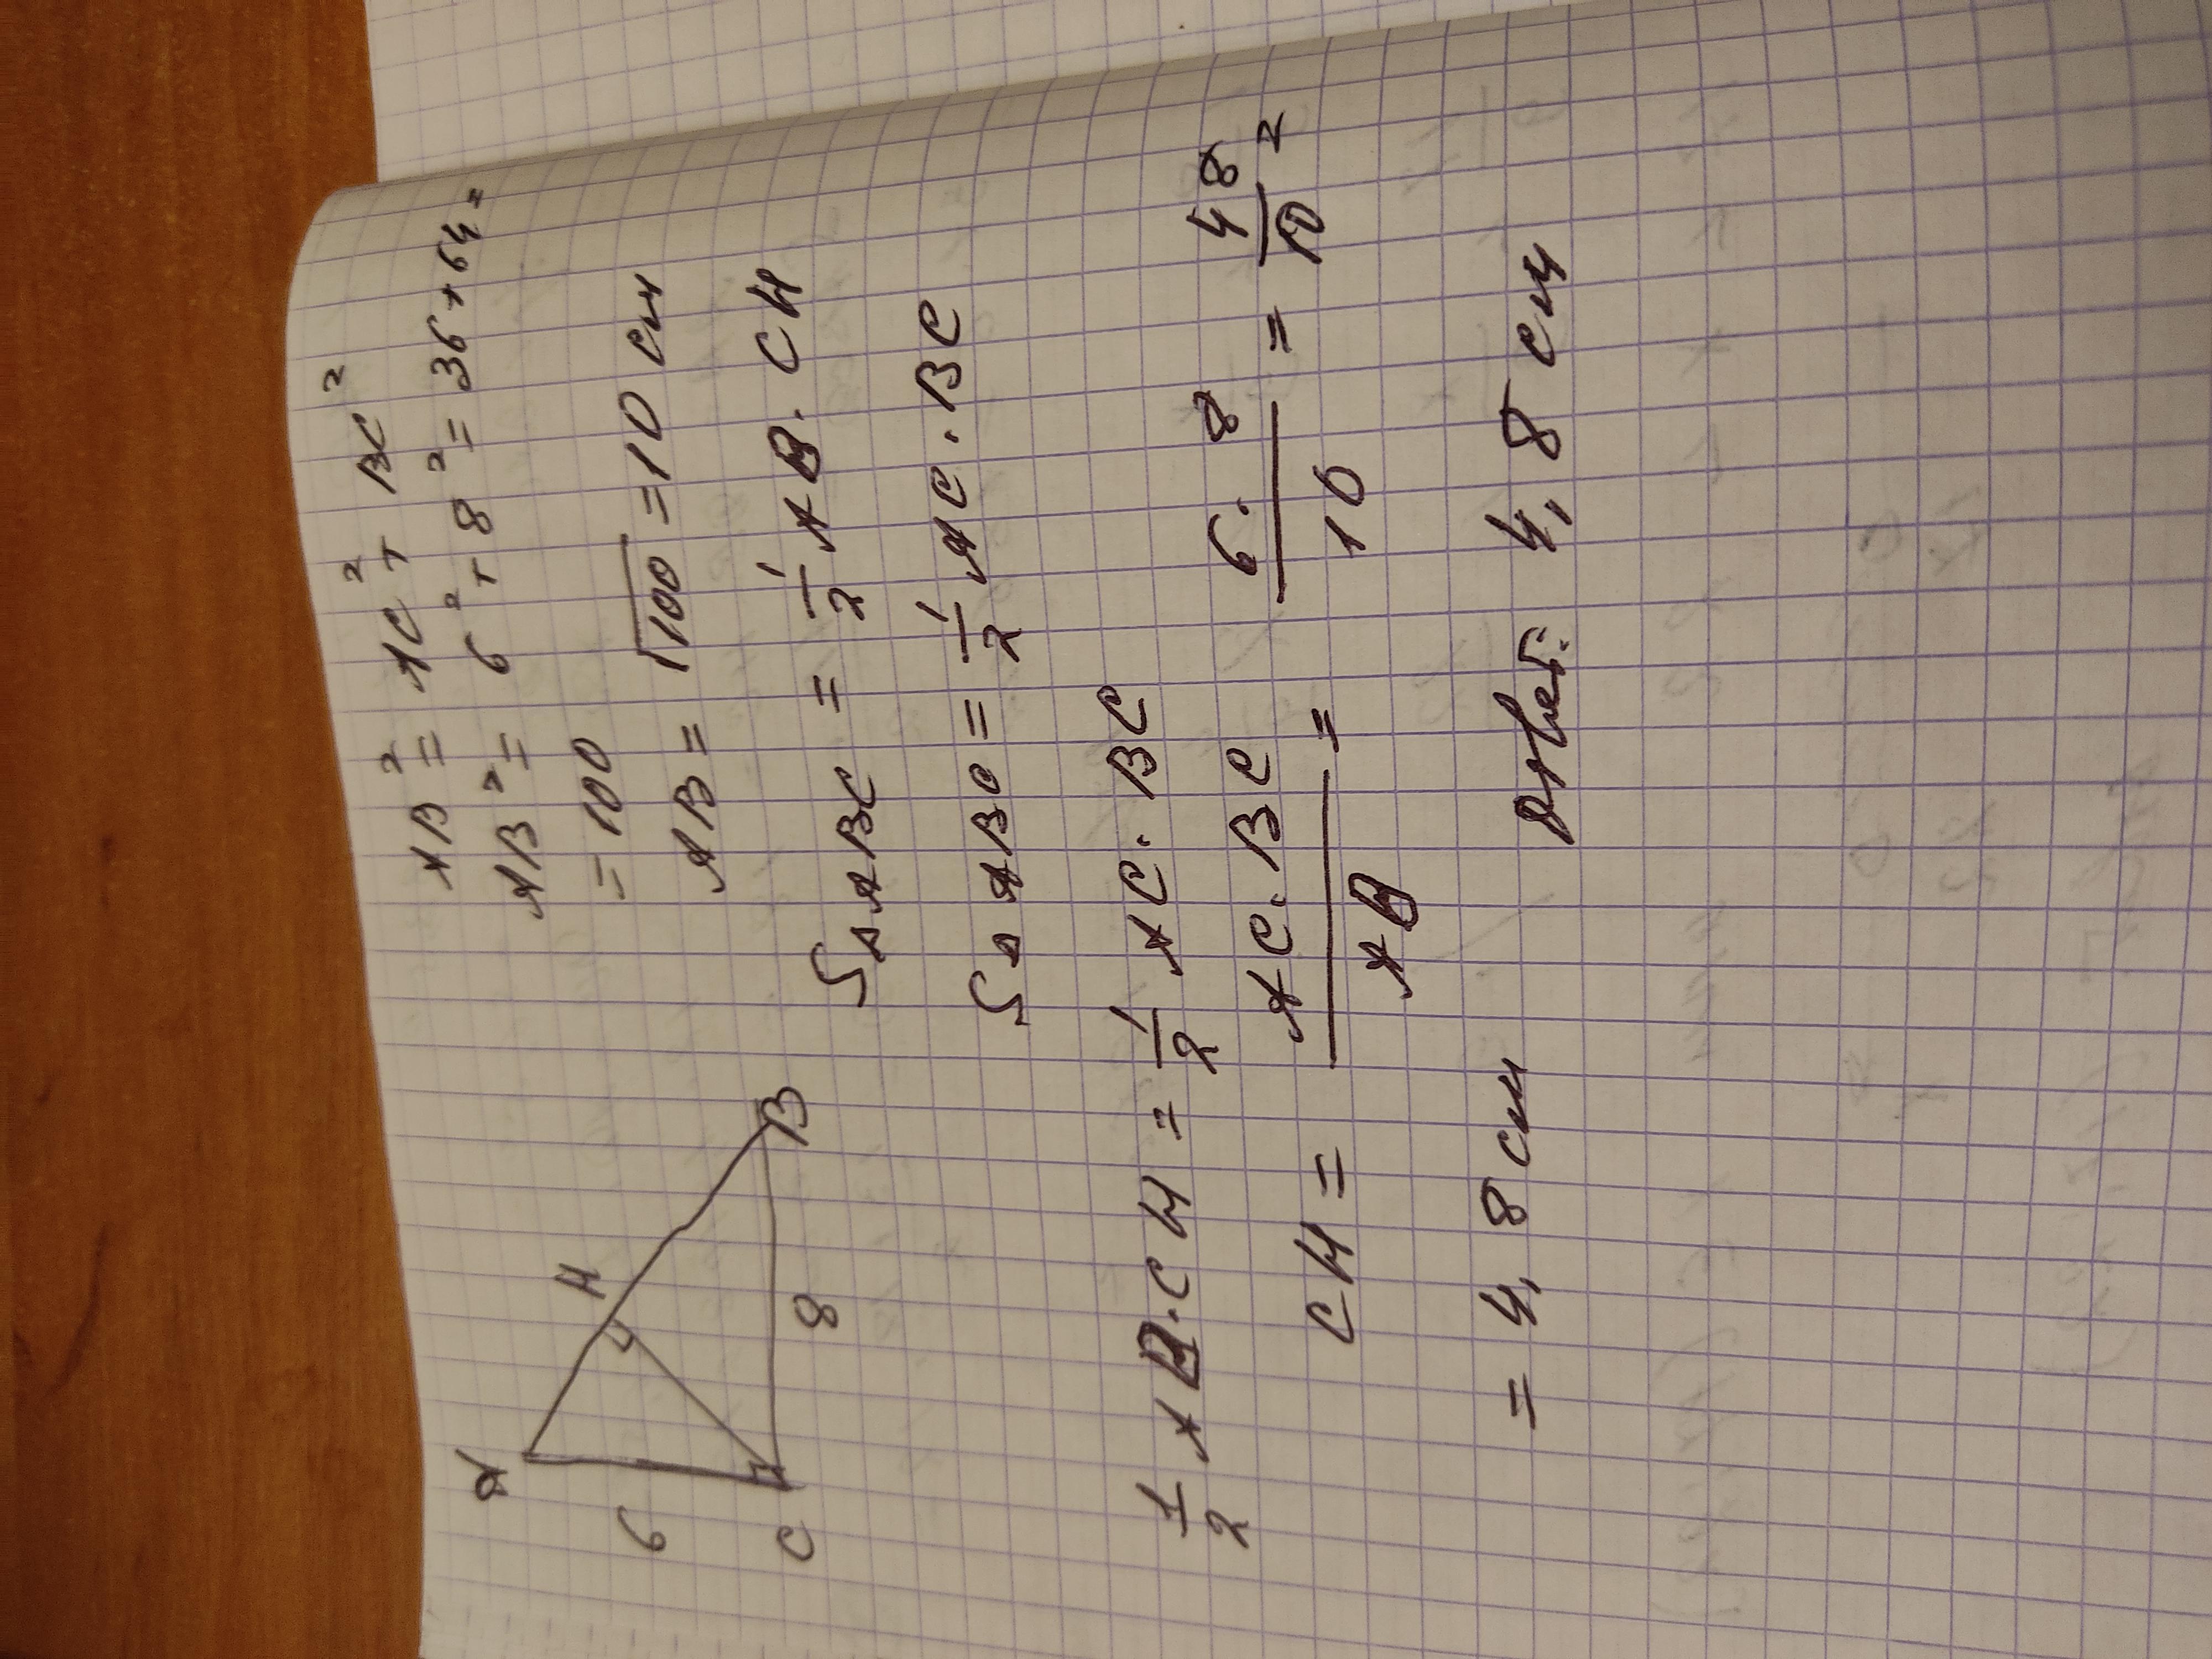 A
H
6
C
8
B
AB² = AC² + BC²
AB² = 6² + 8² = 36 + 64 =
= 100
AB = √100 = 10 см
S△ABC = 1/2 AB · CH
S△ABC = 1/2 AC · BC
1/2 AB · CH = 1/2 AC · BC
CH = AC · BC / AB = 6 · 8 / 10 = 48 / 10 =
= 4,8 см Ответ: 4,8 см